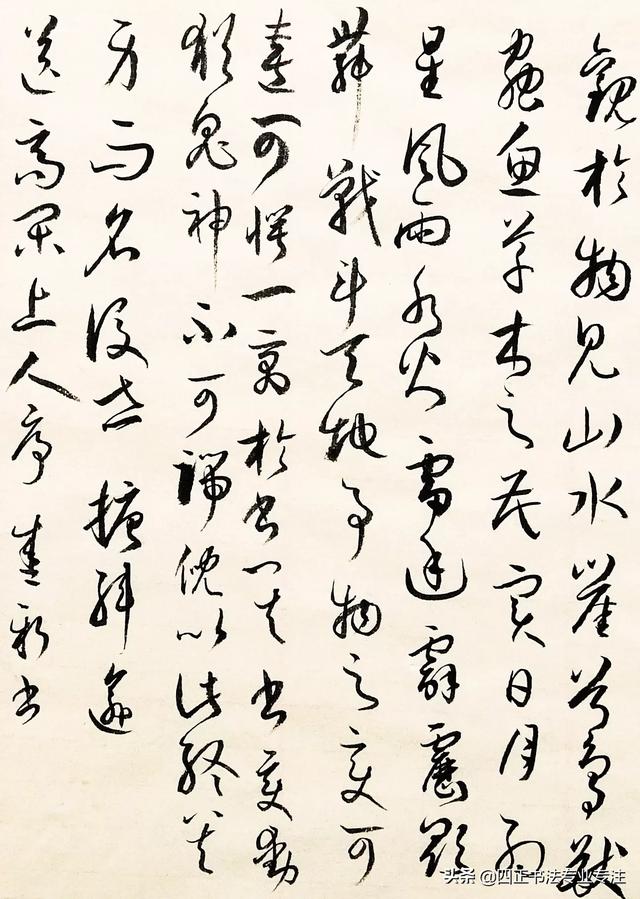 觀於物見山水崖谷鳥獸
蟲魚草木之花實日月列
星風雨水火雷霆霹靂歌
舞戰斗天地事物之變可
喜可愕一寓於書其書變動
猶鬼神不可端倪以此終其
身而名後世韓愈
送高閑上人序新書
头条 @四正书法专业专注